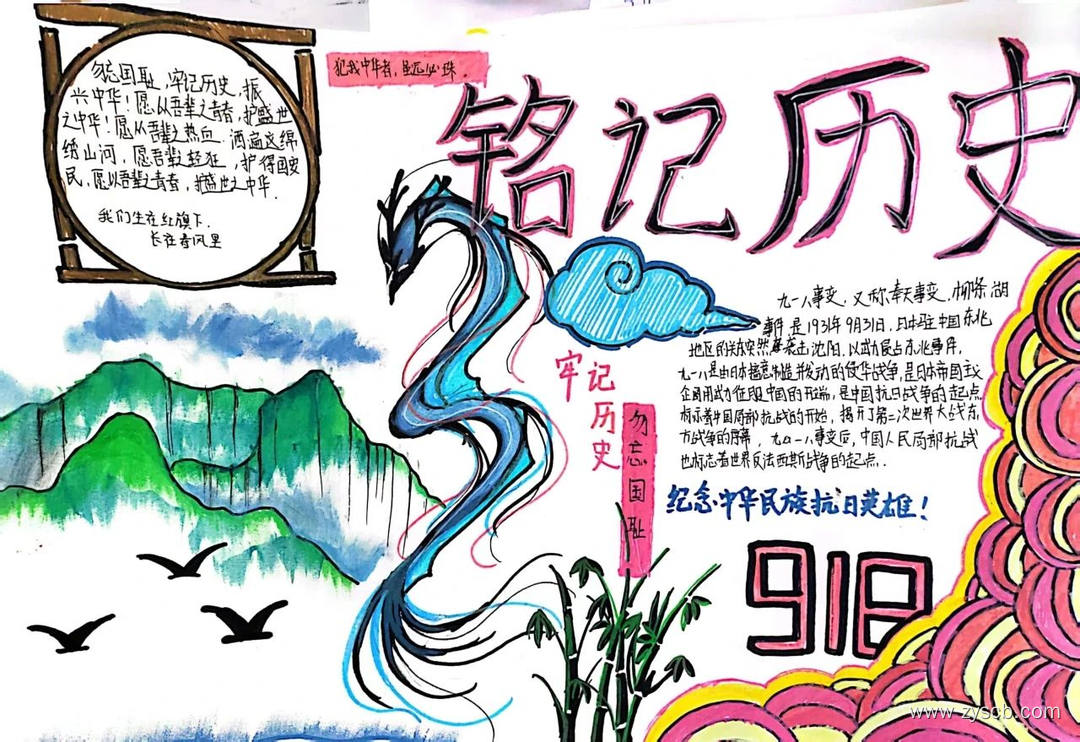 勿忘国耻,牢记历史,振
兴中华!愿以吾辈之青春,护盛世
之中华!愿以吾辈之热血.洒遍这绵
绵山河,愿吾辈轻狂,护得国安
民,愿以吾辈之青春,护盛世之中华.
我们生在红旗下.
长在春风里
犯我中华者,虽远必珠.
铭记历史
九一八事变.又称奉天事变.柳条湖
事件是1931年9月31日,日本驻中国东北
地区的关东突然袭击沈阳,以武力占东北事件.
九一八是由日本蓄意制造并发动的侵华战争,是日本帝国主义
企图用武力征服中国的开端,是中国抗日战争的起点
标示着中国局部抗战的开始,揭开了第二次世界大战东
方战争的序幕,九一八事变后,中国人民局部抗战
也标志着世界反法西斯战争的起点.
牢记
历
史
勿忘国耻
纪念中华民族抗日英雄!
918
www.zyscb.com